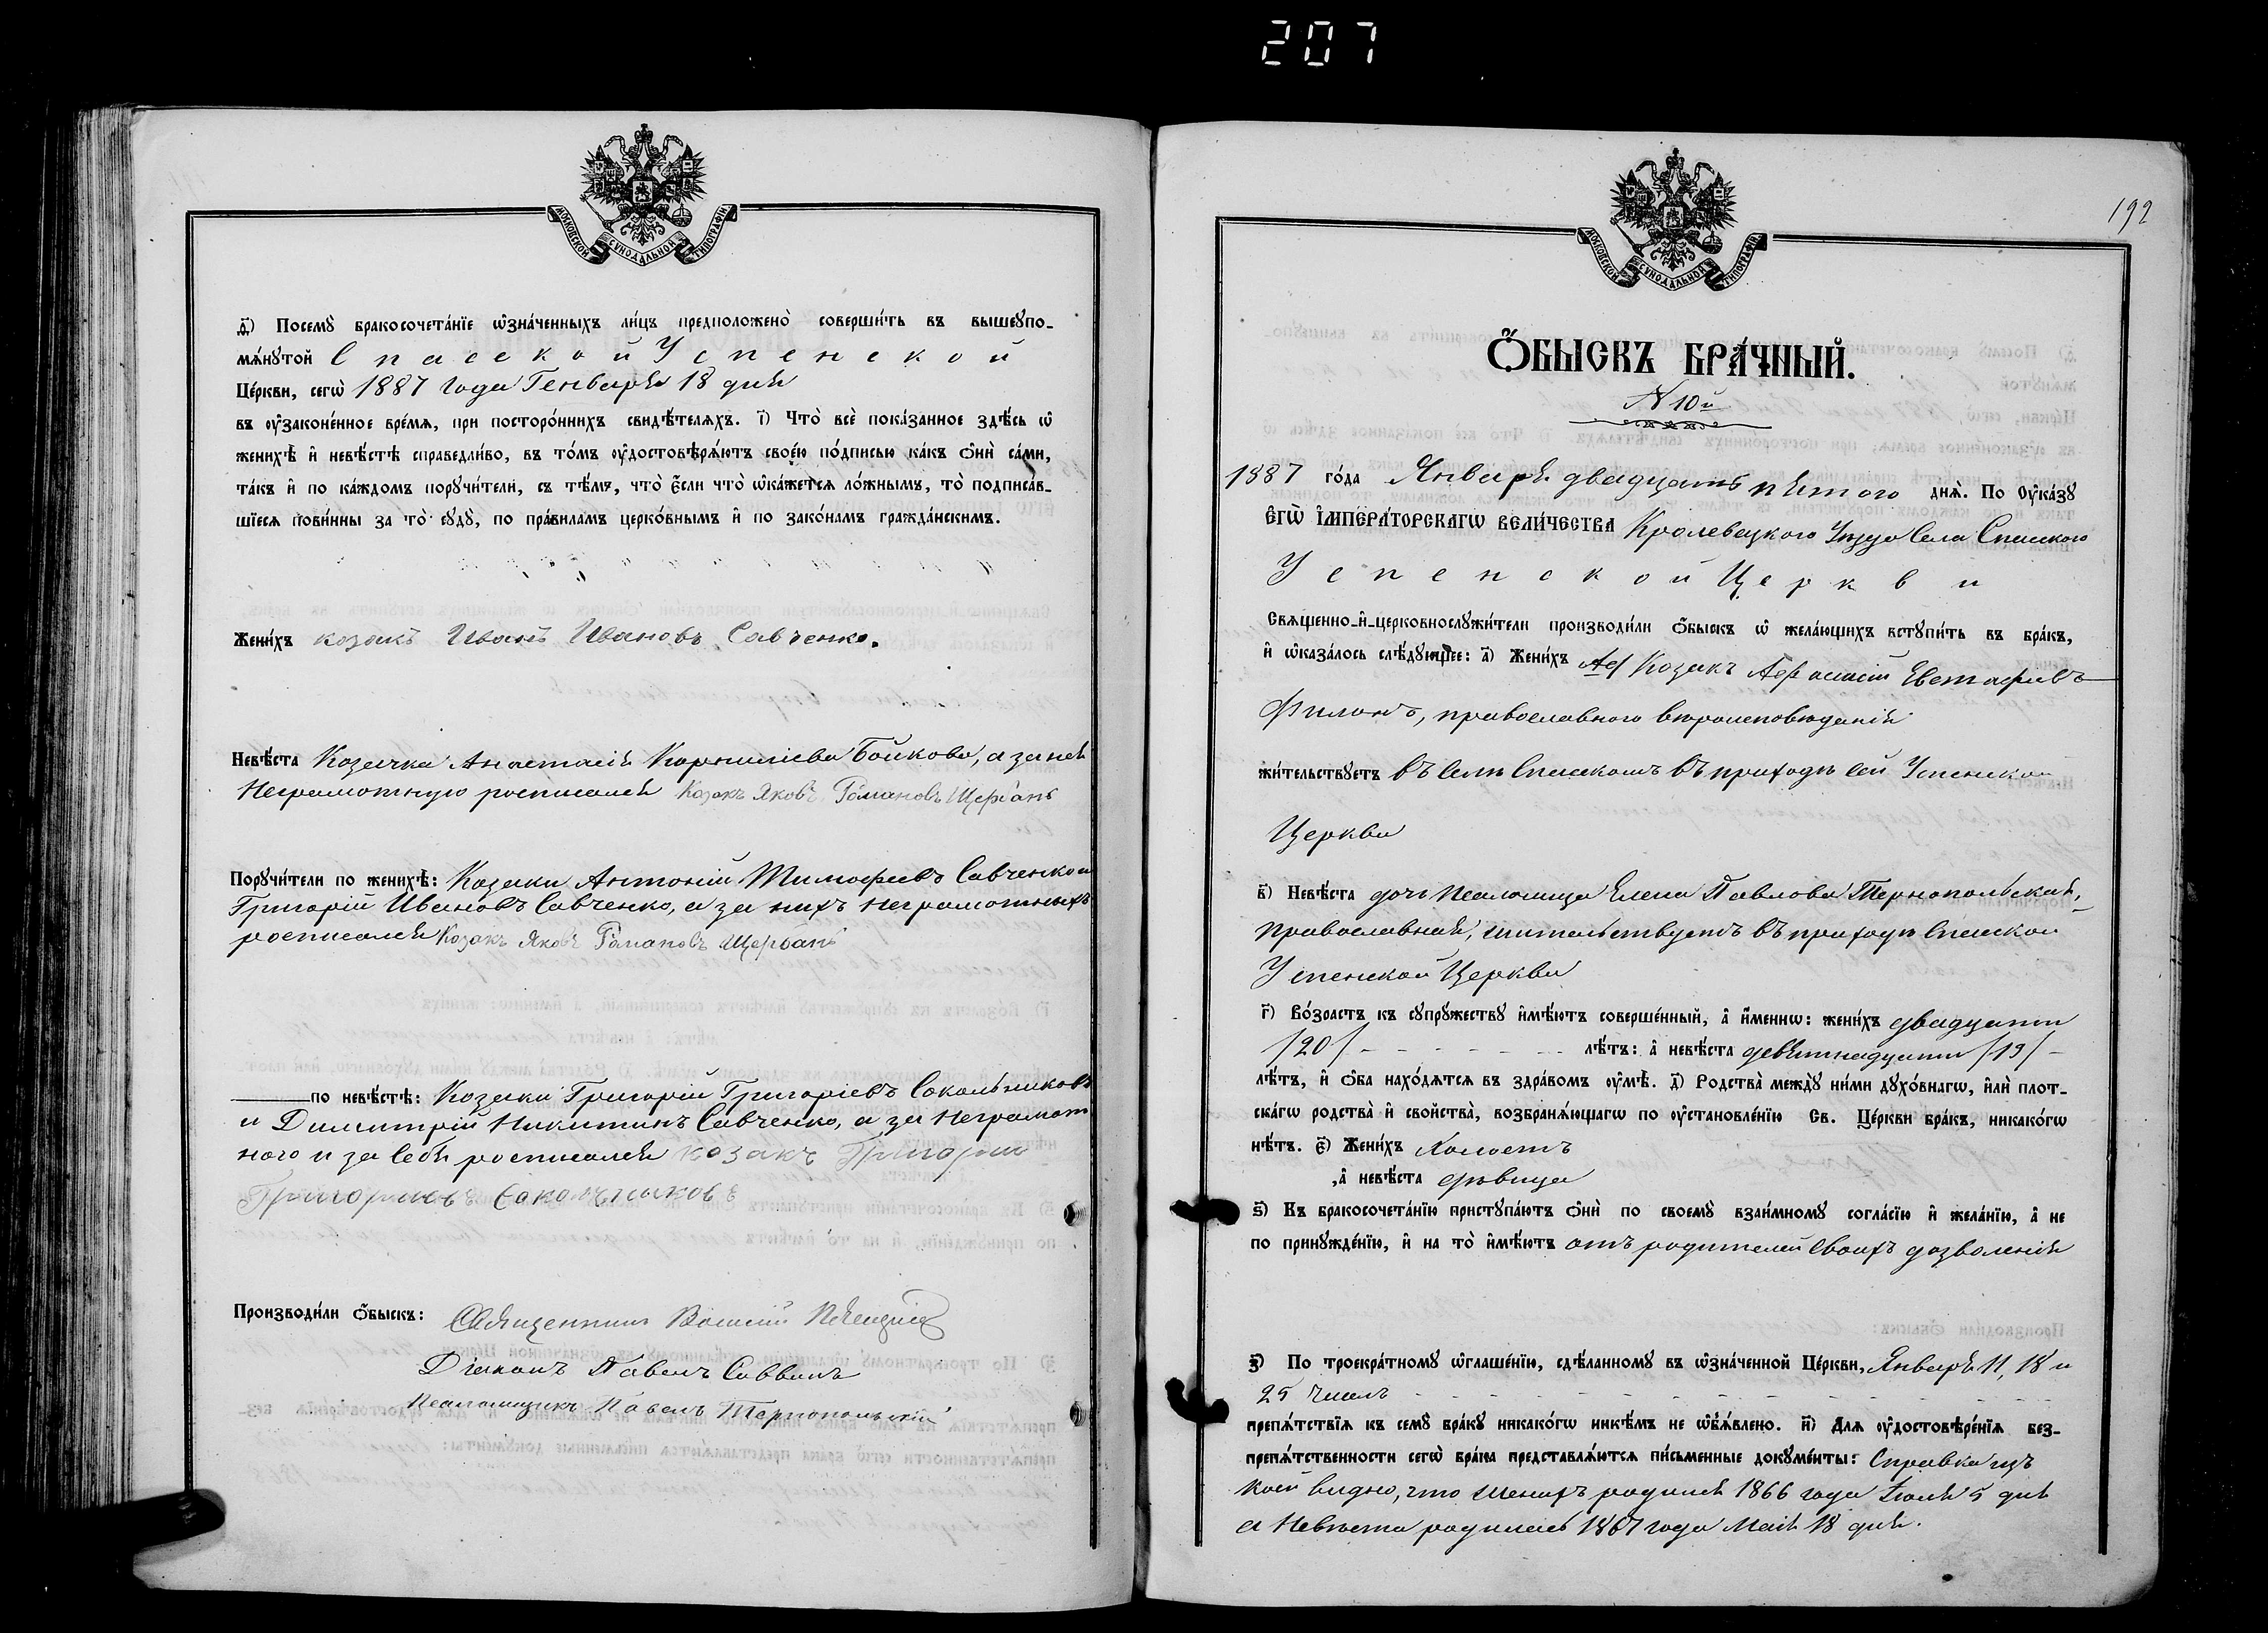 207
МОСКОВСКОЙ СѴНОДАЛЬНОЙ ТИПОГРАФІИ
д҃) Посемꙋ̀ бракосочета́нїе ѡ҆зна́ченныхъ ли́цъ предположено̀ соверши́ть въ вышеꙋпо-
мѧ́нꙋтой Спасской Успенской
Це́ркви, сегѡ̀ 1887 года Генваря 18 дня
въ ᲂу҆законе́нное вре́мѧ, при посторо́ннихъ свидѣ́телѧхъ. і҃) Что̀ всѐ пока́занное здѣ́сь ѡ҆
женихѣ̀ и҆ невѣ́стѣ справедли́во, въ то́мъ ᲂу҆достовѣрѧ́ютъ свое́ю по́дписью ка́къ ѻ҆нѝ са́ми,
та́къ и҆ по ка́ждомъ порꙋчи́тели, съ тѣ́мъ, что̀ є҆́сли что̀ ѡ҆ка́жетсѧ ло́жнымъ, то̀ подписа́в-
шїесѧ пови́нны за то̀ сꙋдꙋ̀, по пра́виламъ церко́внымъ и҆ по зако́намъ гражда́нскимъ.
Жени́хъ козакъ Иванъ Ивановъ Савченко.
Невѣ́ста Козачка Анастасія Корниліева Бойкова, а за нея
Неграмотную росписался Козакъ Яковъ Романовъ Щербань
Порꙋчи́тели по женихѣ̀: Козаки Антоній Тимофеевъ Савченко и
Григорій Ивановъ Савченко, а за нихъ неграмотныхъ
росписался Козакъ Яковъ Романовъ Щербань
по невѣ́стѣ: Козаки Григорій Григоріевъ Сокольниковъ
и Димитрій Никитинъ Савченко, а за Неграмот
ного и за себя росписался козакъ Григорій
Григориевъ Сокольниковъ
Производи́ли ѻ҆́быскъ: Священникъ Василій
Діаконъ Павелъ Саввинъ
Псаломщикъ Павелъ Тернопольскій
192
МОСКОВСКОЙ СѴНОДАЛЬНОЙ ТИПОГРАФІИ
Ѻ҆́БЫСКЪ БРА́ЧНЫЙ.
N 10й
1887 го́да Января двадцать пятого днѧ̀. По Оу҆ка́зꙋ
Є҆гѡ̀ І҆мпера́торскагѡ Вели́чества Кролевецкого Уѣзда Села Спасского
Успенской Церкви
Свѧщенно-и҆-церковнослꙋжи́тели производи́ли ѻ҆́быскъ ѡ҆ жела́ющихъ встꙋпи́ть въ бра́къ,
и҆ ѡ҆каза́лось слѣ́дꙋющее: а҃) Жени́хъ Аф Козакъ Афанасій Евстафіевъ
Филонъ, православного вѣроисповѣданія
жи́тельствꙋетъ въ Селѣ Спасскомъ въ приходѣ сей Успенской
Церкви
в҃) Невѣ́ста дочь псаломщика Елена Павлова Тернопольская,
православная, жительствуетъ въ приходѣ Спасской
Успенской Церкви
г҃) Во́зрастъ къ сꙋпрꙋ́жествꙋ и҆мѣ́ютъ соверше́нный, а҆ и҆́меннѡ: жени́хъ двадцати
/20/ лѣ́тъ: а҆ невѣ́ста девятнадцати /19/
лѣ́тъ, и҆ ѻ҆́ба нахо́дѧтсѧ въ здра́вомъ ᲂу҆мѣ̀. д҃) Родства̀ междꙋ̀ ни́ми дꙋхо́внагѡ, и҆лѝ плот-
ска́гѡ родства̀ и҆ сво́йства̀, возбранѧ́ющагѡ по ᲂу҆становле́нїю Св. Це́ркви бра́къ, никако́гѡ
нѣ́тъ. є҃) Жени́хъ Холостъ
,а҆ невѣ́ста дѣвица
ѕ҃) Къ бракосочета́нїю пристꙋпа́ютъ ѻ҆нѝ по своемꙋ̀ взаи́мномꙋ согла́сїю и҆ жела́нїю, а҆ не
по принꙋжде́нїю, и҆ на то̀ и҆мѣ́ютъ отъ родителей Своихъ дозволенія
з҃) По троекра́тномꙋ ѡ҆глаше́нїю, сдѣ́ланномꙋ въ ѡ҆зна́ченной Це́ркви, Января 11, 18 и
25 чиселъ
препѧ́тствїѧ къ семꙋ̀ бра́кꙋ никако́гѡ никѣ́мъ не ѡ҆б̾ѧ́влено. и҃) Длѧ ᲂу҆достовѣре́нїѧ без-
препѧ́тственности сегѡ̀ бра́ка представлѧ́ютсѧ пи́сьменные докꙋме́нты: Справка изъ
коей видно, что женихъ родился 1866 года Іюля 5 дня
а Невѣста родилась 1867 года Маія 18 дня.